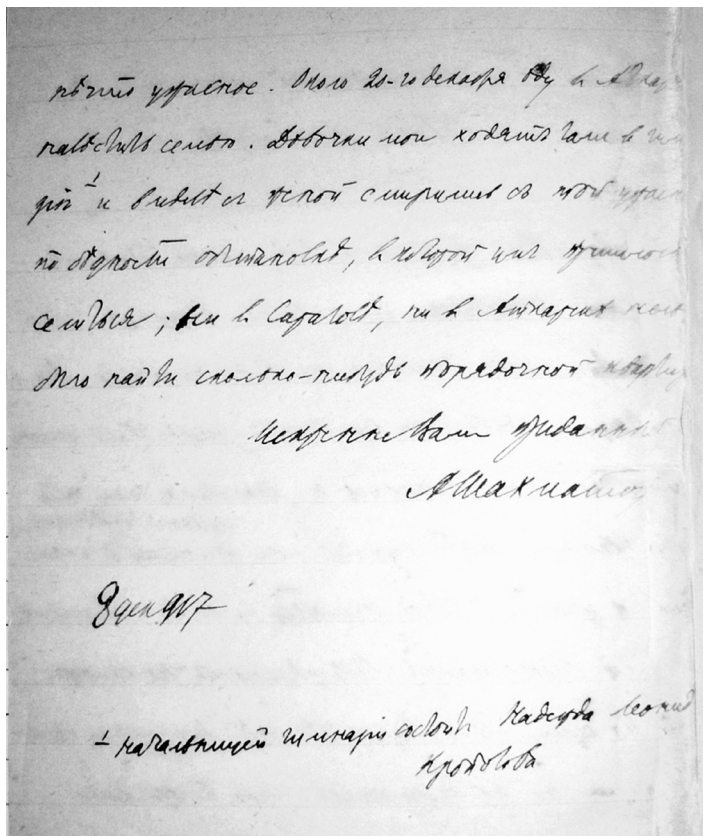 нѣчто ужасное. Около 20-го декабря ѣду в Аткар
навѣстить семью. Дѣвочки мои ходятъ там в гим
¹ и вмѣстѣ с женой смирились съ этой ужасн
по бѣдности обстановкѣ, в которой им пришлось
селиться; ни в Саратовѣ, ни в Аткарскѣ нель
было найти сколько-нибудь порядочной квартир
Искренне Вам преданный
АШахматов
8 дек 917
¹ начальницей гимназіи состоитъ Надежда Леонид
Кротова